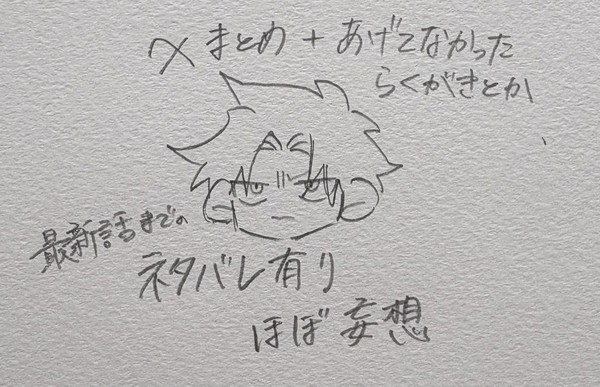 〆まとめ+あげてなかった
らくがきとか
最新話までの
ネタバレ有り
ほぼ妄想